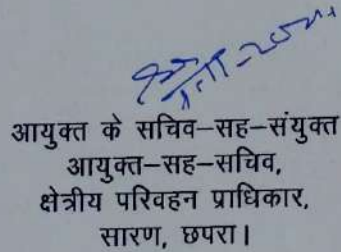 आयुक्त के सचिव–सह–संयुक्त
आयुक्त–सह–सचिव,
क्षेत्रीय परिवहन प्राधिकार,
सारण, छपरा।